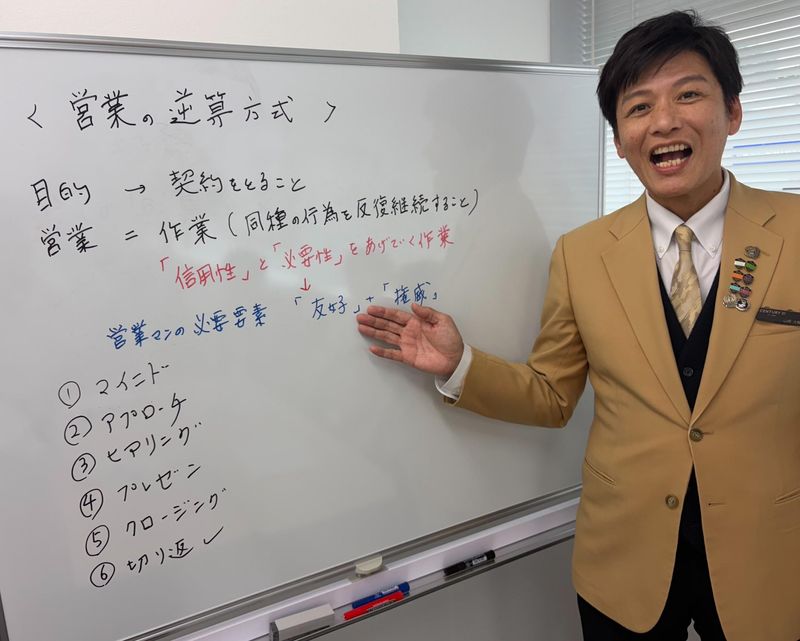 ＜ 営業の逆算方式 ＞
目的 → 契約をとること
営業 = 作業（同種の行為を反復継続すること）
「信用性」と「必要性」をあげていく作業
↓
営業マンの必要要素 「友好」+「権威」
① マインド
② アプローチ
③ ヒアリング
④ プレゼン
⑤ クロージング
⑥ 切り返し
CENTURY 21